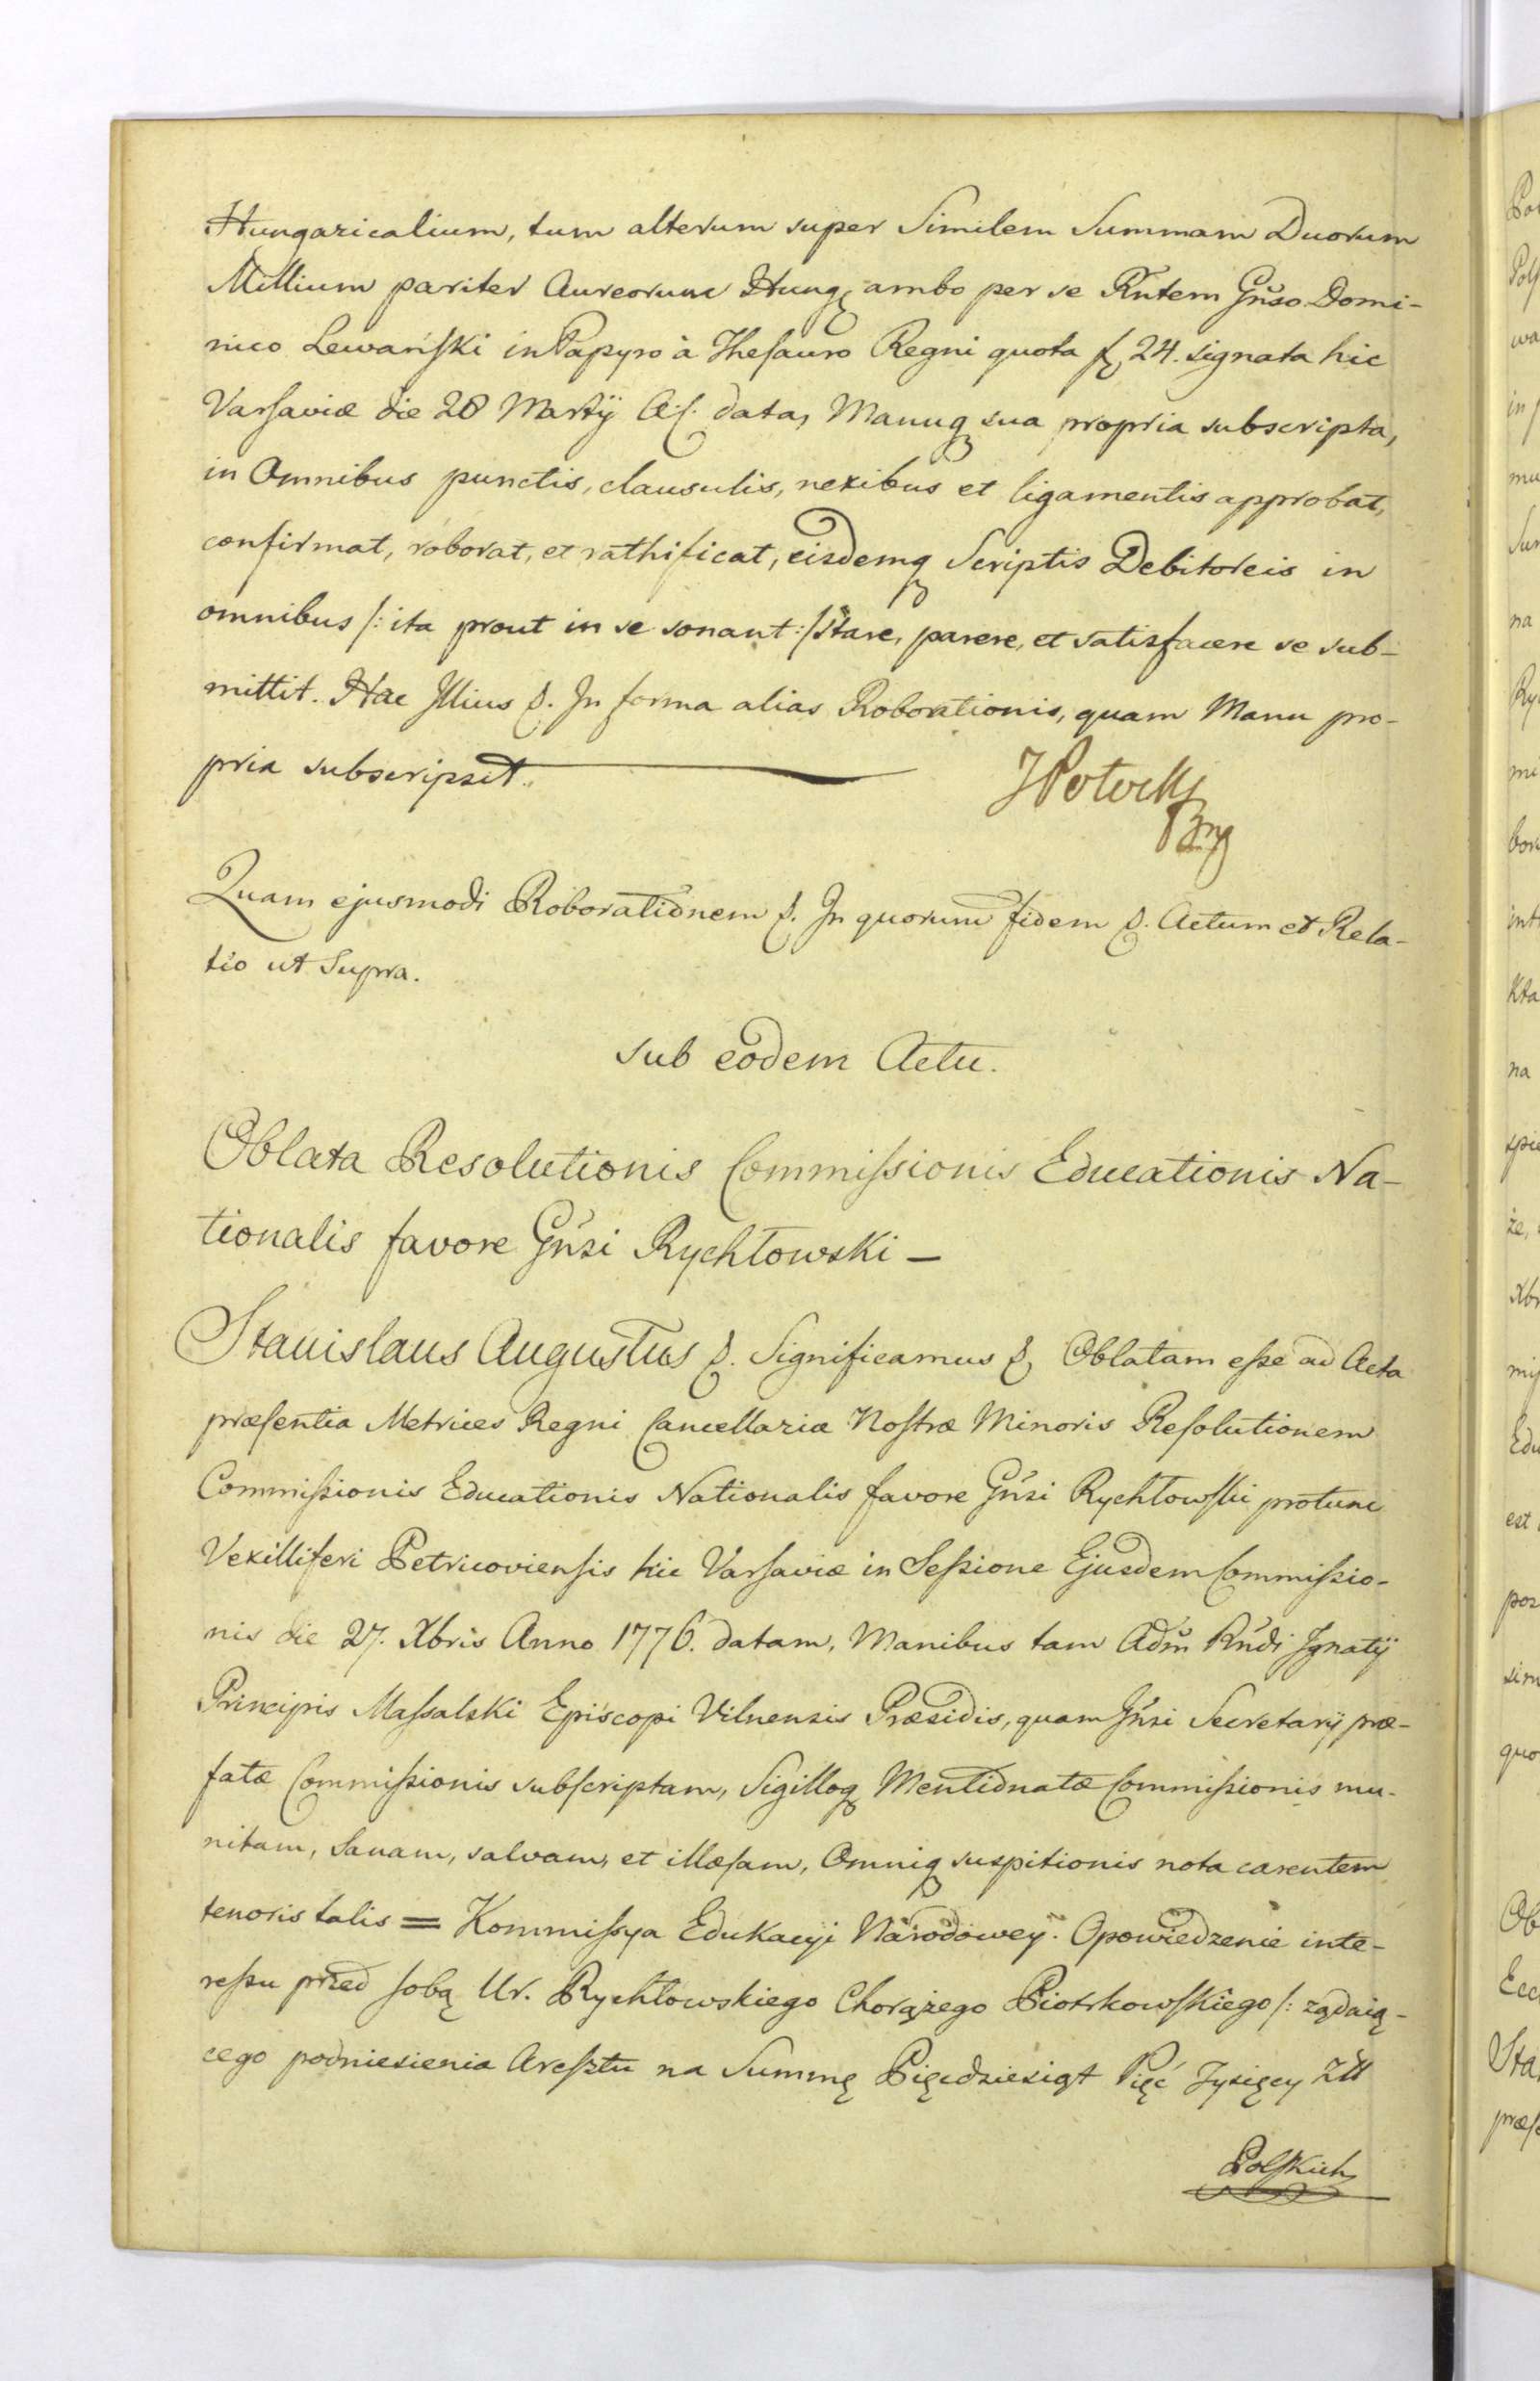 Hungaricalium, tum alterum super Similem Summam Duorum
Millium pariter Aureorum Hung: ambo per se Rntem Gnso Domi-
nico Lewański in Papyro à Thesauro Regni quota f 24. signata hic
Varsaviæ die 28 Martÿ A:c. data, Manuq sua propria subscripta,
in Omnibus punctis, clausulis, nexibus et ligamentis approbat,
confirmat, roborat, et rathificat, eisdemq Scriptis Debitoreis in
omnibus /: ita prout in se sonant :/ stare, parere, et satisfacere se sub-
mittit. Hac Illius &. In forma alias Roborationis, quam Manu pro-
pria subscripsit.
JPotocki
Quam ejusmodi Roborationem &. In quorum fidem &. Actum et Rela-
tio ut Supra.
sub eodem Actu.
Oblata Resolutionis Commissionis Educationis Na-
tionalis favore Gnsi Rychłowski —
Stanislaus Augustus &. Significamus & Oblatam esse ad Acta
præsentia Metrices Regni Cancellariæ Nostræ Minoris Resolutionem
Commissionis Educationis Nationalis favore Gnsi Rychłowski protunc
Vexilliferi Petricoviensis hic Varsaviæ in Sessione Ejusdem Commissio-
nis die 27. Xbris Anno 1776. datam, Manibus tam Adm Rndi Ignatÿ
Principis Massalski Episcopi Vilnensis Præsidis, quam Gnsi Secretarÿ præ-
fatæ Commissionis subscriptam, Sigilloq Mentionatæ Commissionis mu-
nitam, Sanam, salvam, et illæsam, Omniq suspitionis nota carentem
tenoris talis = Kommissya Edukacyi Narodowey. Opowiedzenie inte-
ressu przed sobą Ur. Rychłowskiego Chorążego Piotrkowskiego /: ządaią-
cego podniesienia Aresztu na Summę Pięcdziesiąt Pięć Tysięcy Złł
Polskich